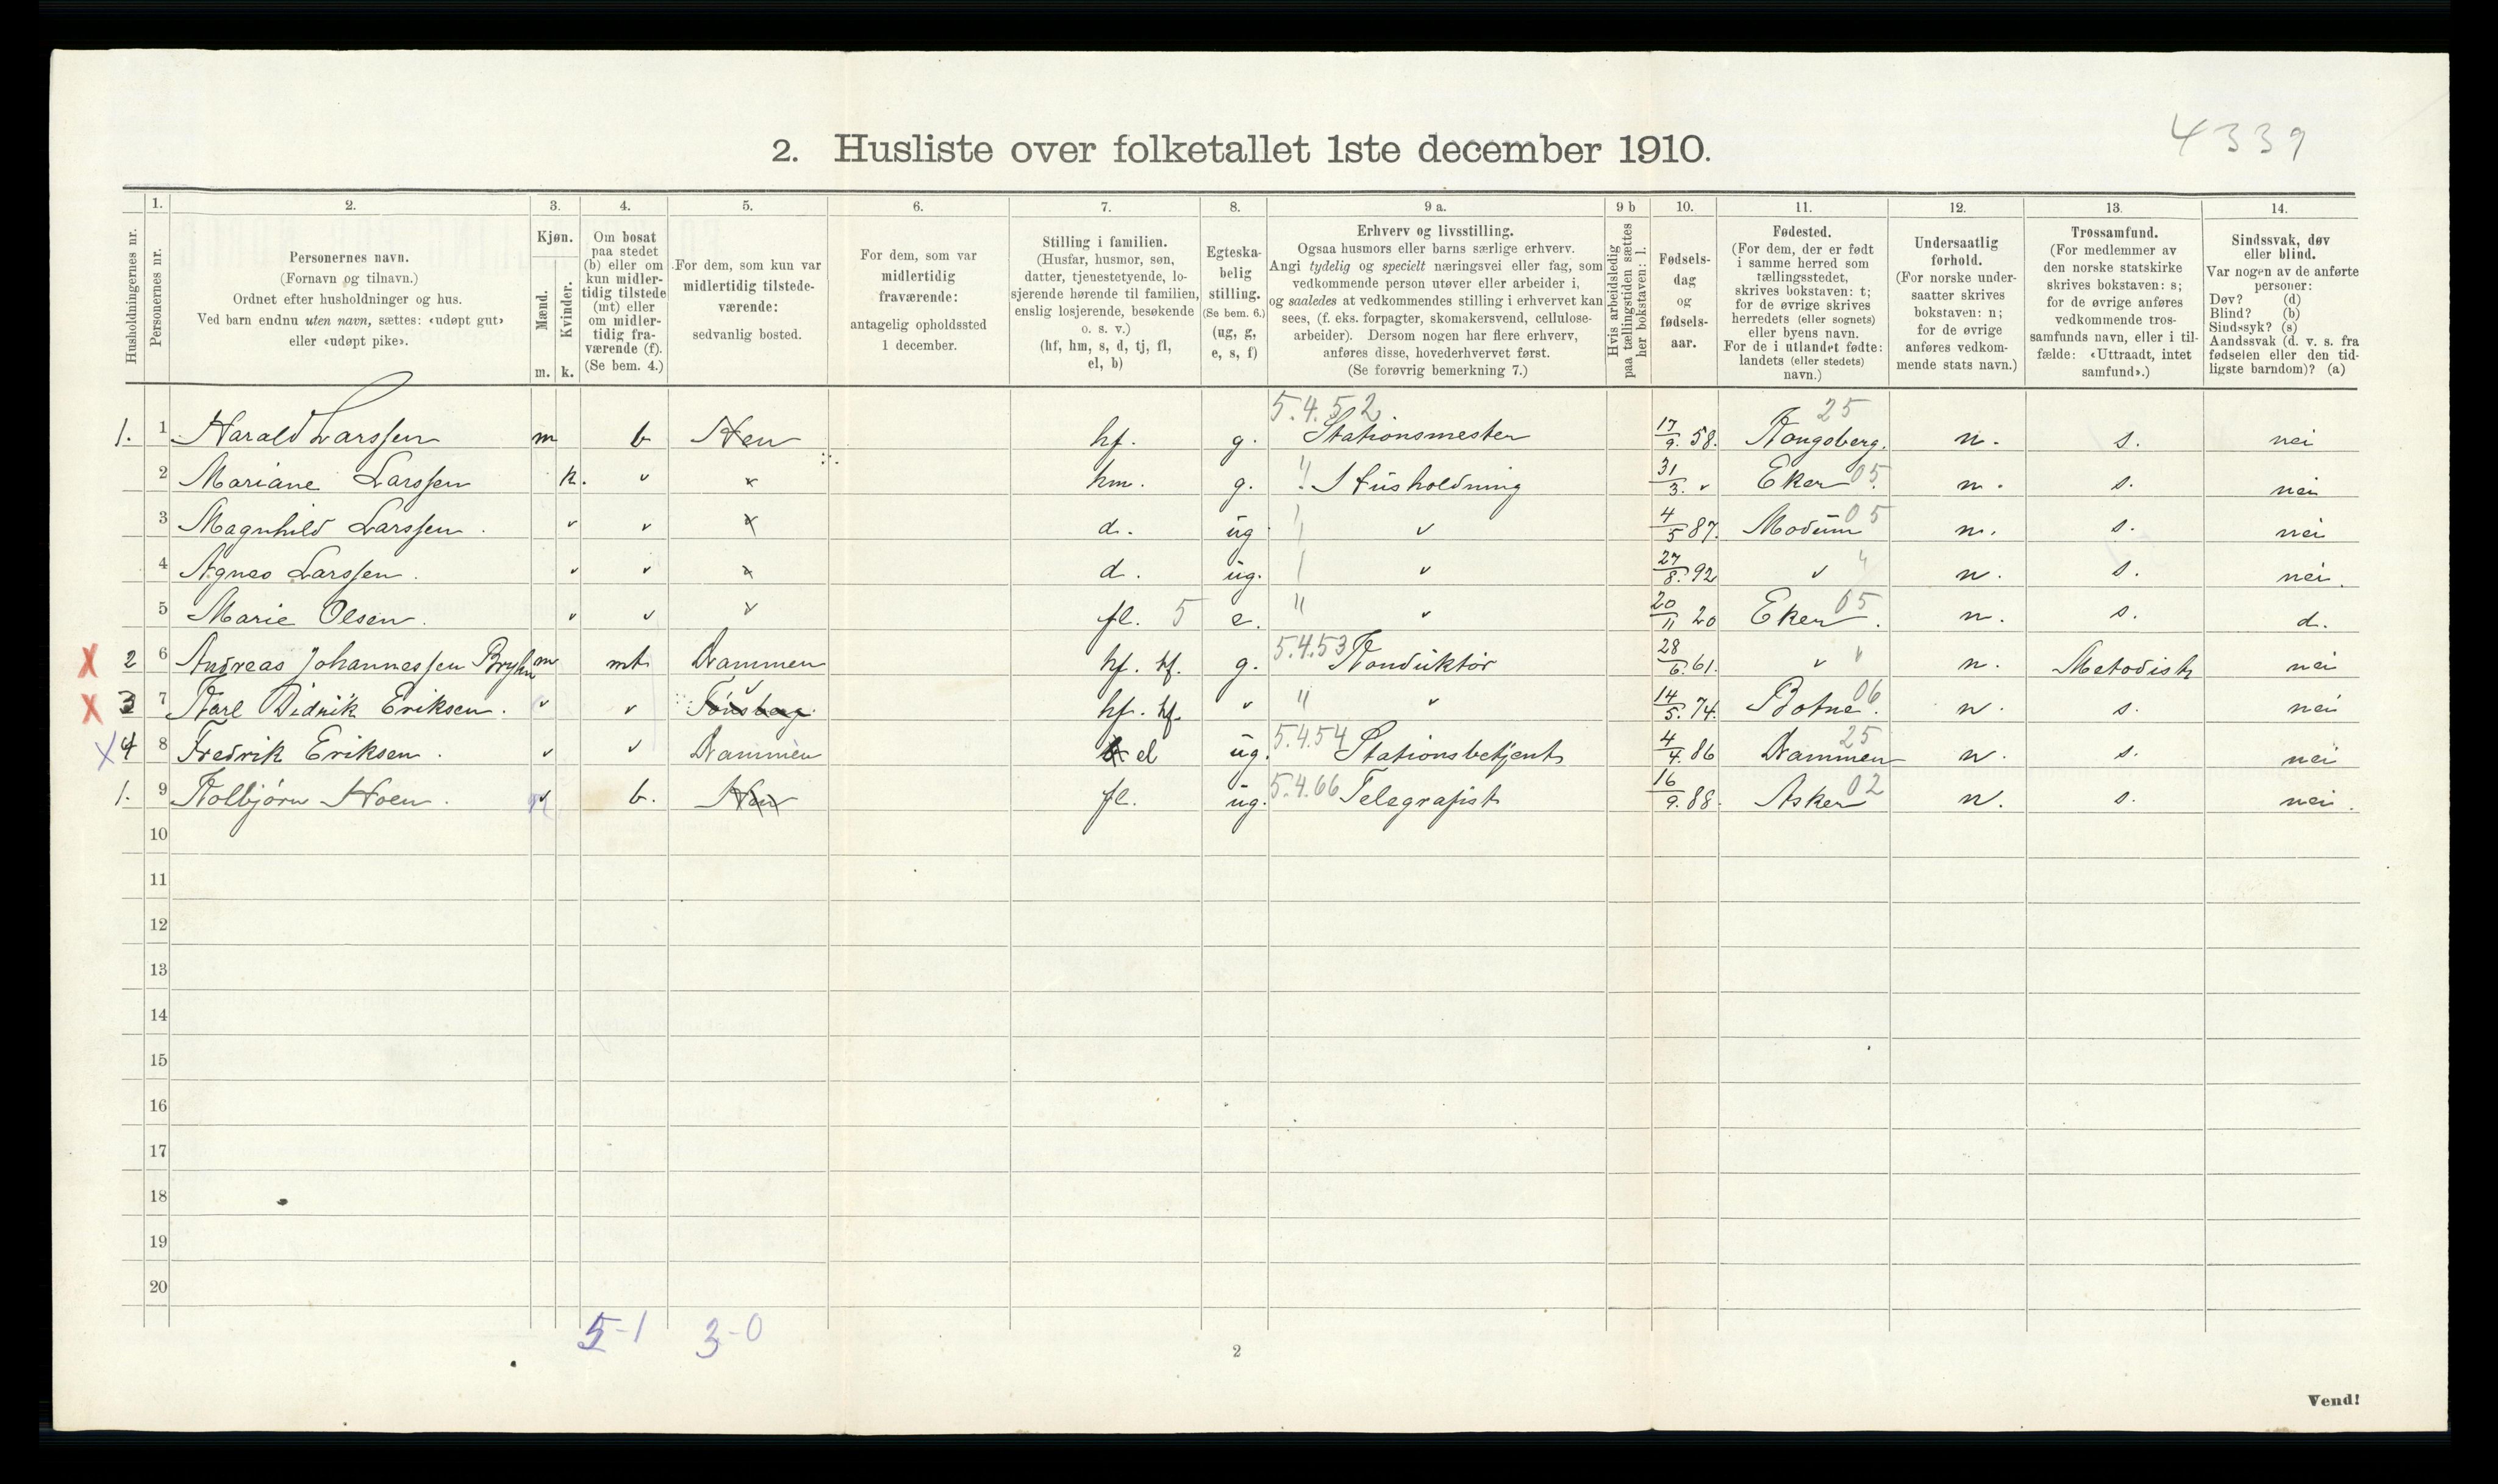 4339
2. Husliste over folketallet 1ste december 1910.
1. 2. 3. 4. 5. 6. 7. 8. 9 a. 9 b 10. 11. 12. 13. 14.
Husholdningernes nr.
Personernes nr.
Personernes navn.
(Fornavn og tilnavn.)
Ordnet efter husholdninger og hus.
Ved barn endnu uten navn, sættes: «udøpt gut»
eller «udøpt pike».
Kjøn.
Mænd.
Kvinder.
m. k.
Om bosat
paa stedet
(b) eller om
kun midler-
tidig tilstede
(mt) eller
om midler-
tidig fra-
værende (f).
(Se bem. 4.)
For dem, som kun var
midlertidig tilstede-
værende:
sedvanlig bosted.
For dem, som var
midlertidig
fraværende:
antagelig opholdssted
1 december.
Stilling i familien.
(Husfar, husmor, søn,
datter, tjenestetyende, lo-
sjerende hørende til familien,
enslig losjerende, besøkende
o. s. v.)
(hf, hm, s, d, tj, fl,
el, b)
Egteska-
belig
stilling.
(Se bem. 6.)
(ug, g,
e, s, f)
Erhverv og livsstilling.
Ogsaa husmors eller barns særlige erhverv.
Angi tydelig og specielt næringsvei eller fag, som
vedkommende person utøver eller arbeider i,
og saaledes at vedkommendes stilling i erhvervet kan
sees, (f. eks. forpagter, skomakersvend, cellulose-
arbeider). Dersom nogen har flere erhverv,
anføres disse, hovederhvervet først.
(Se forøvrig bemerkning 7.)
Hvis arbeidsledig
paa tællingstiden sættes
her bokstaven: l.
Fødsels-
dag
og
fødsels-
aar.
Fødested.
(For dem, der er født
i samme herred som
tællingsstedet,
skrives bokstaven: t;
for de øvrige skrives
herredets (eller sognets)
eller byens navn.
For de i utlandet fødte:
landets (eller stedets)
navn.)
Undersaatlig
forhold.
(For norske under-
saatter skrives
bokstaven: n;
for de øvrige
anføres vedkom-
mende stats navn.)
Trossamfund.
(For medlemmer av
den norske statskirke
skrives bokstaven: s;
for de øvrige anføres
vedkommende tros-
samfunds navn, eller i til-
fælde: «Uttraadt, intet
samfund».)
Sindssvak, døv
eller blind.
Var nogen av de anførte
personer:
Døv? (d)
Blind? (b)
Sindssyk? (s)
Aandssvak (d. v. s. fra
fødselen eller den tid-
ligste barndom)? (a)
5.4.52 25
1. 1 Harald Larssen m b Hen hf. g. Stationsmester 17/9. 58. Kongsberg. n. s. nei
2 Mariane Larssen k. v v hm. g. " I Husholdning 31/3. v Eker 05. n. s. nei
3 Magnhild Larssen. v v v d. ug v 4/5 87. Modum 05 n. s. nei
4 Agnes Larssen. v v v d. ug. v 27/8. 92 v " n. s. nei.
5 Marie Olsen. v v v fl. 5 e. " v 20/11 20 Eker 05. n. s. d.
X 2 6 Andreas Johannessen Bryhn m mt Drammen hf. hf. g. 5.4.53 Konduktør 28/6. 61. v " n. Metodist nei
X 3 7 Karl Didrik Eriksen. v v v Tønsberg hf. hf. v " v 14/5. 74. Botne 06. n. s. nei
X 4 8 Fredrik Eriksen. v v Drammen el ug. 5.4.54 Stationsbetjent 4/4. 86 Drammen 25 n. s. nei
1. 9 Kolbjørn Hoen. v b. Hen fl. ug. 5.4.66 Telegrafist 16/9. 88. Asker 02 n. s. nei.
10
11
12
13
14
15
16
17
18
19
20
5-1 3-0
2
Vend!